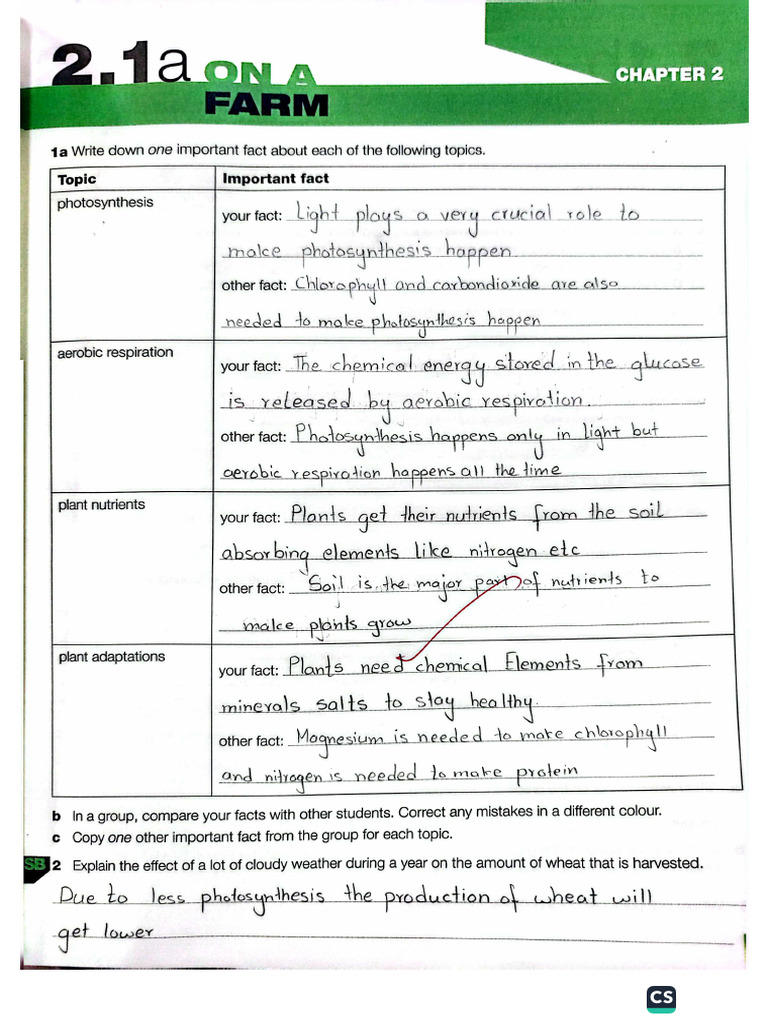 2.1a ON A
FARM
CHAPTER 2
1a Write down one important fact about each of the following topics.
Topic Important fact
photosynthesis
your fact: Light plays a very crucial role to
make photosynthesis happen
other fact: Chlorophyll and carbondioxide are also
needed to make photosynthesis happen
aerobic respiration
your fact: The chemical energy stored in the glucose
is released by aerobic respiration.
other fact: Photosynthesis happens only in light but
aerobic respiration happens all the time
plant nutrients
your fact: Plants get their nutrients from the soil
absorbing elements like nitrogen etc
other fact: Soil is the major part of nutrients to
make plants grow
plant adaptations
your fact: Plants need chemical Elements from
minerals salts to stay healthy.
other fact: Magnesium is needed to make chlorophyll
and nitrogen is needed to make protein
b In a group, compare your facts with other students. Correct any mistakes in a different colour.
c Copy one other important fact from the group for each topic.
SB 2 Explain the effect of a lot of cloudy weather during a year on the amount of wheat that is harvested.
Due to less photosynthesis the production of wheat will
get lower
CS